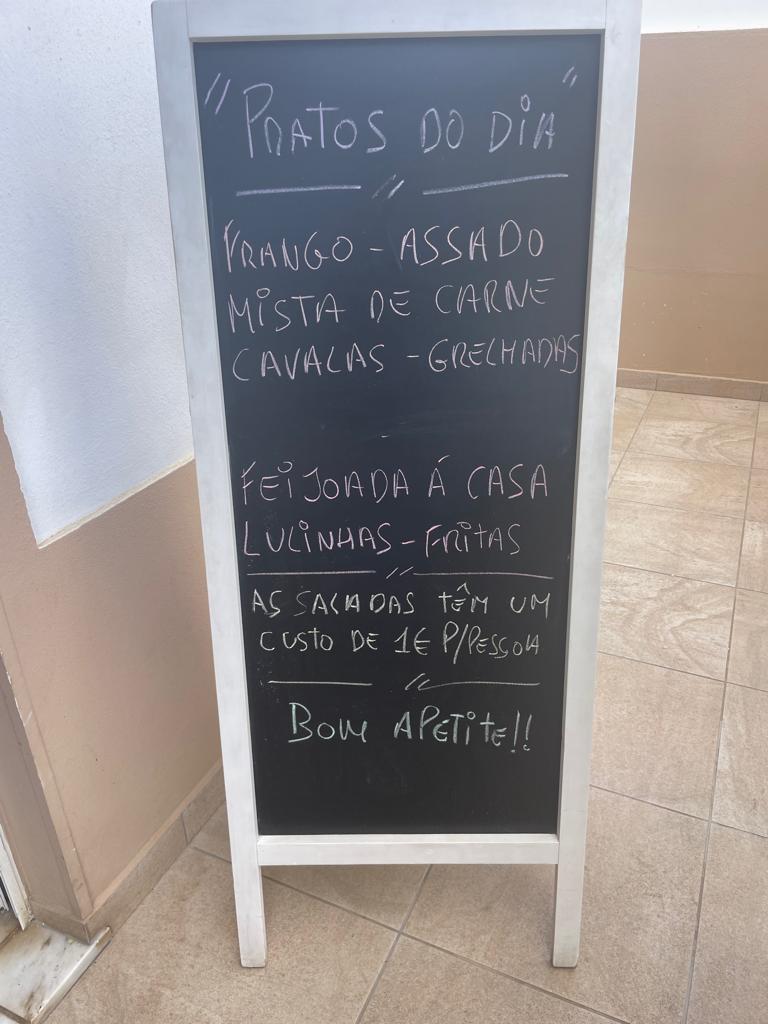 "PRATOS DO DIA"
FRANGO - ASSADO
MISTA DE CARNE
CAVALAS - GRELHADAS
FEIJOADA Á CASA
LULINHAS - FRITAS
AS SALADAS TÊM UM
CUSTO DE 1€ P/PESSOA
BOM APETITE!!